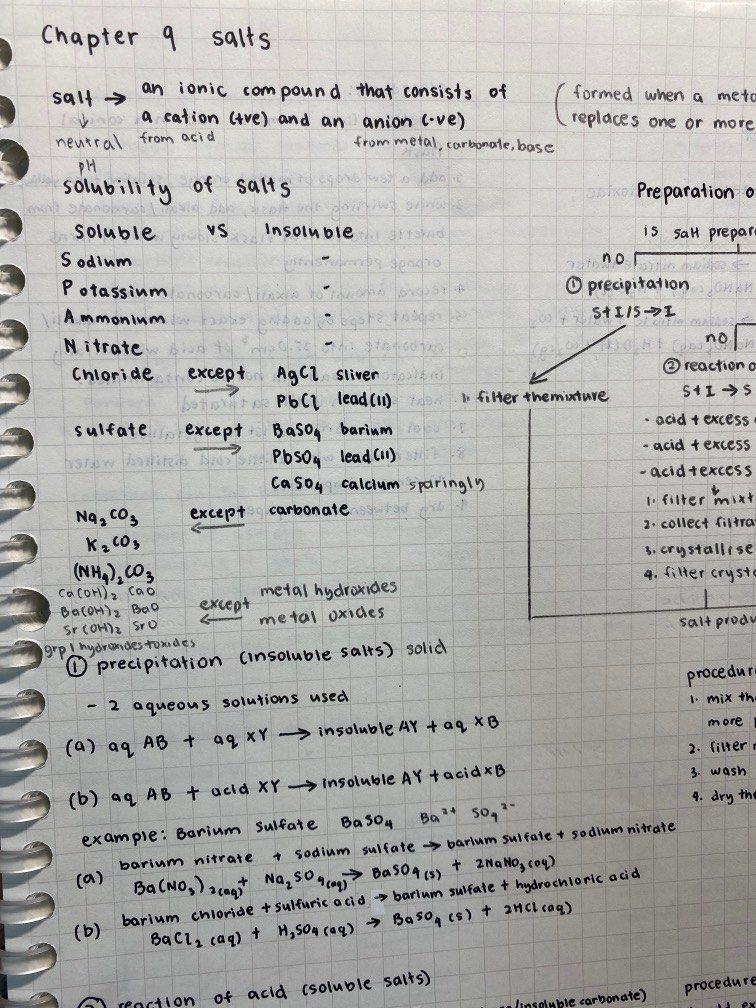 Chapter 9 salts
salt → an ionic compound that consists of
a cation (+ve) and an anion (-ve)
↓
neutral from acid from metal, carbonate, base
pH
(formed when a meta
replaces one or more
solubility of salts
Soluble vs Insoluble
Sodium -
Potassium -
Ammonium -
Nitrate -
Chloride except → AgCl sliver
PbCl lead(II)
sulfate except → BaSO4 barium
PbSO4 lead(II)
CaSO4 calcium sparingly
Na2CO3 except ← carbonate
K2CO3
(NH4)2CO3
Ca(OH)2 CaO
Ba(OH)2 BaO except ← metal hydroxides
Sr(OH)2 SrO metal oxides
grp 1 hydroxides + oxides
Preparation o
is salt prepar
no
① precipitation
S + I/S → I
no
② reaction o
S + I → S
- acid + excess
- acid + excess
- acid + excess
1. filter the mixture
1. filter mixt
2. collect filtra
3. crystallise
4. filter crysta
salt produ
① precipitation (insoluble salts) solid
- 2 aqueous solutions used
(a) aq AB + aq XY → insoluble AY + aq XB
(b) aq AB + acid XY → insoluble AY + acid XB
example: Barium Sulfate BaSO4 Ba2+ SO4 2-
(a) barium nitrate + sodium sulfate → barium sulfate + sodium nitrate
Ba(NO3)2(aq) + Na2SO4(aq) → BaSO4(s) + 2NaNO3(aq)
(b) barium chloride + sulfuric acid → barium sulfate + hydrochloric acid
BaCl2 (aq) + H2SO4 (aq) → BaSO4 (s) + 2HCl (aq)
procedur
1. mix th
more
2. filter
3. wash
4. dry the
② reaction of acid (soluble salts)
/insoluble carbonate)
procedure